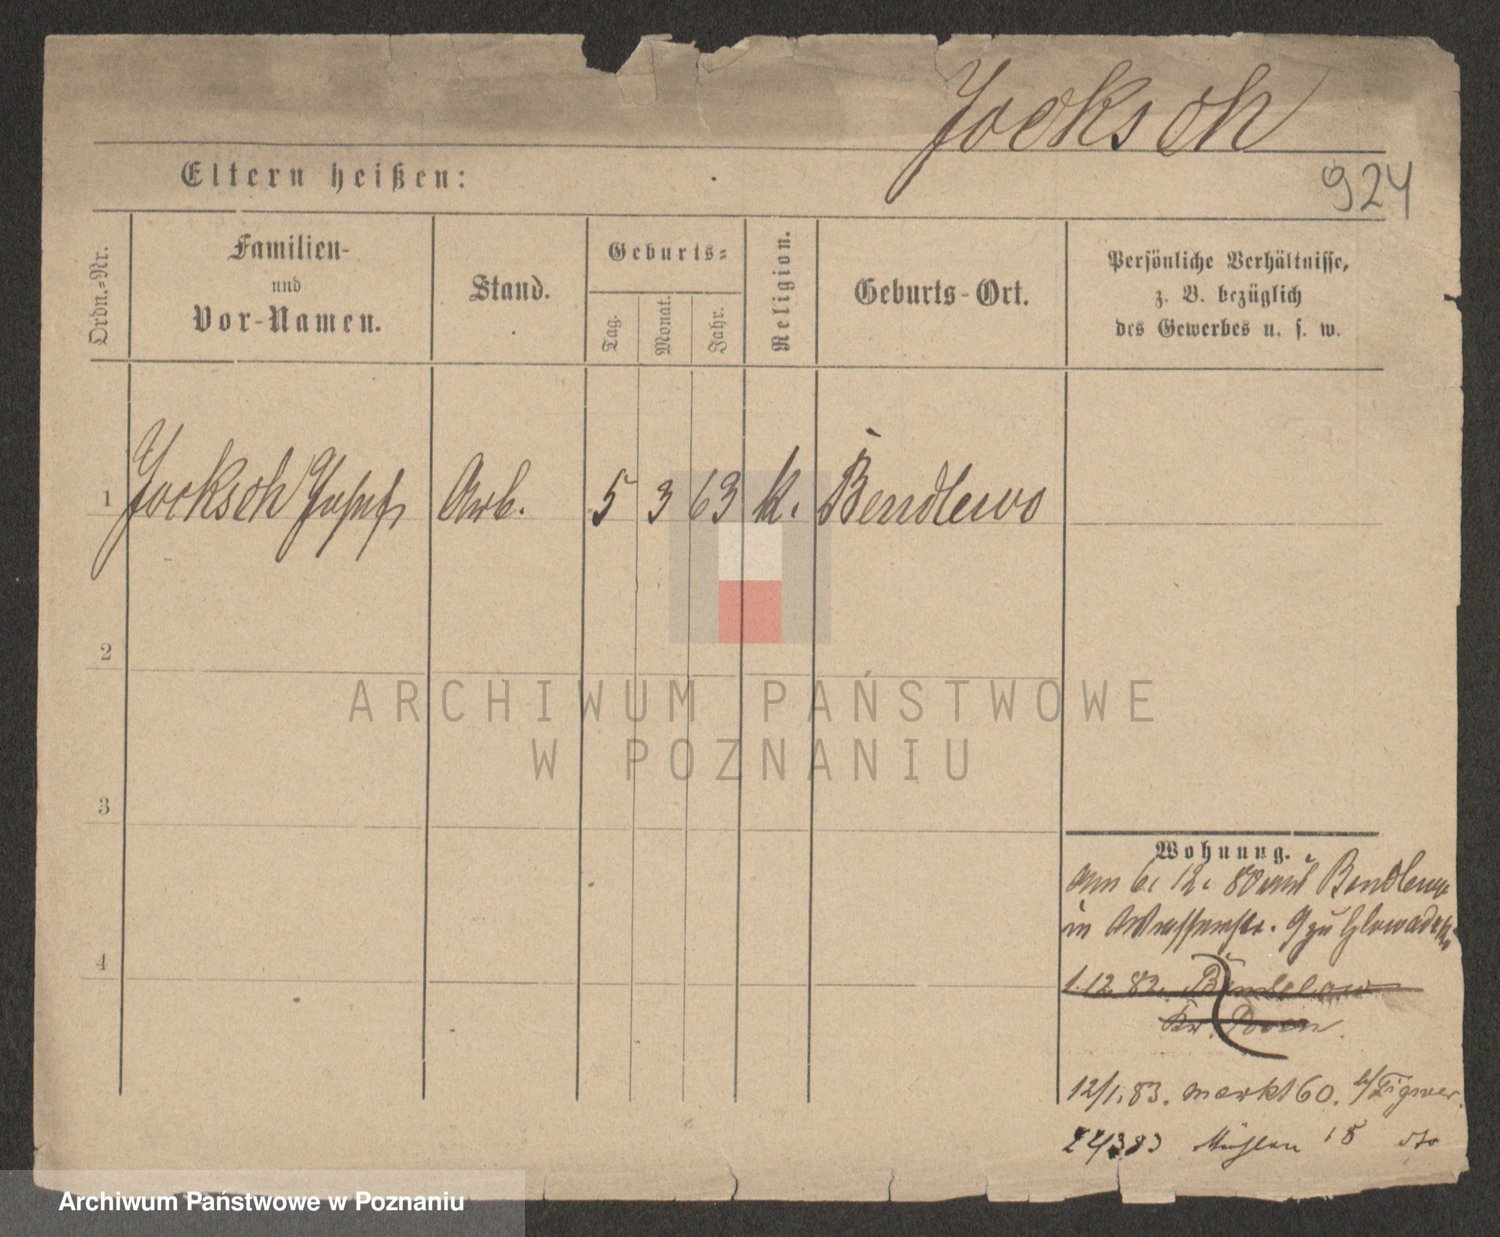 Jocksch
924
Eltern heißen:
Ordn.-Nr.
Familien-
und
Vor-Namen.
Stand.
Geburts-
Tag.
Monat.
Jahr.
Religion.
Geburts-Ort.
Persönliche Verhältnisse,
z. B. bezüglich
des Gewerbes u. s. w.
1 Jocksch Josef Arb. 5 3 63 k. Bendlewo
2
3
4
ARCHIWUM PAŃSTWOWE
W POZNANIU
Wohnung.
am 6. 12. 80 aus Bendlewo
in Wasserstr. 9 zu
1.12 82.
Kr. Posen
12/1.83. Markt 60. b/
24/3 83 Mühlen 18 dto
Archiwum Państwowe w Poznaniu